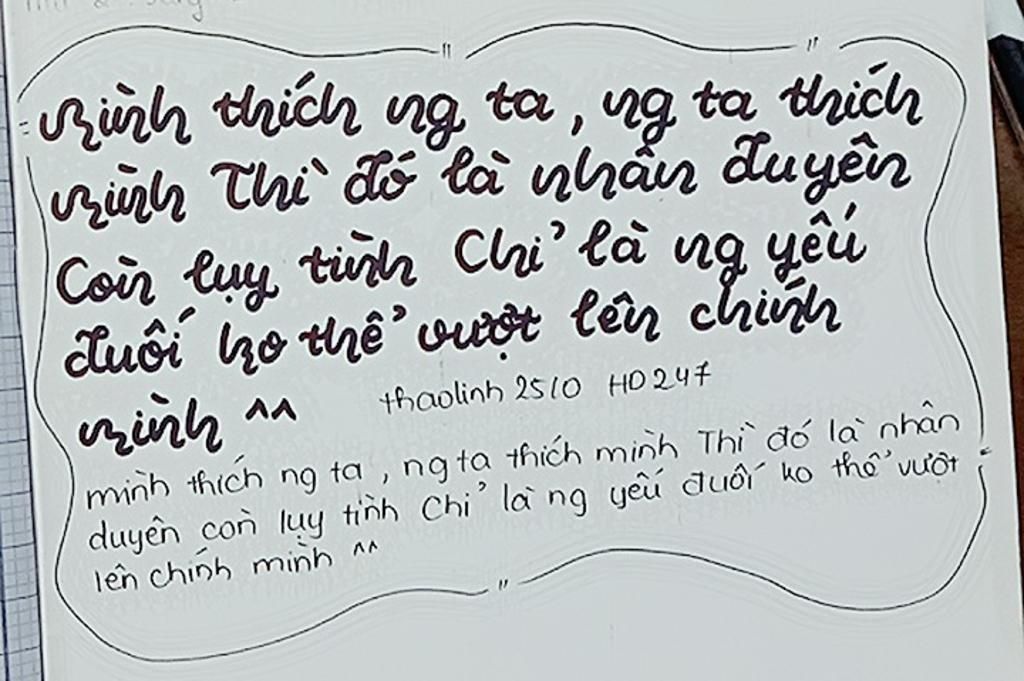 mình thích ng ta, ng ta thích
mình Thì đó là nhân duyên
Còn lụy tình Chỉ là ng yếu
đuối ko thể vượt lên chính
mình ^^
thaolinh2510 HD247
mình thích ng ta, ng ta thích mình Thì đó là nhân
duyên còn lụy tình Chỉ là ng yếu đuối ko thể vượt
lên chính mình ^^